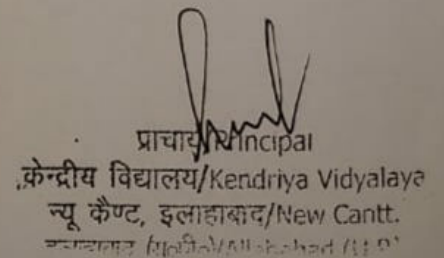 प्राचार्य/Principal
केन्द्रीय विद्यालय/Kendriya Vidyalaya
न्यू कैण्ट, इलाहाबाद/New Cantt.